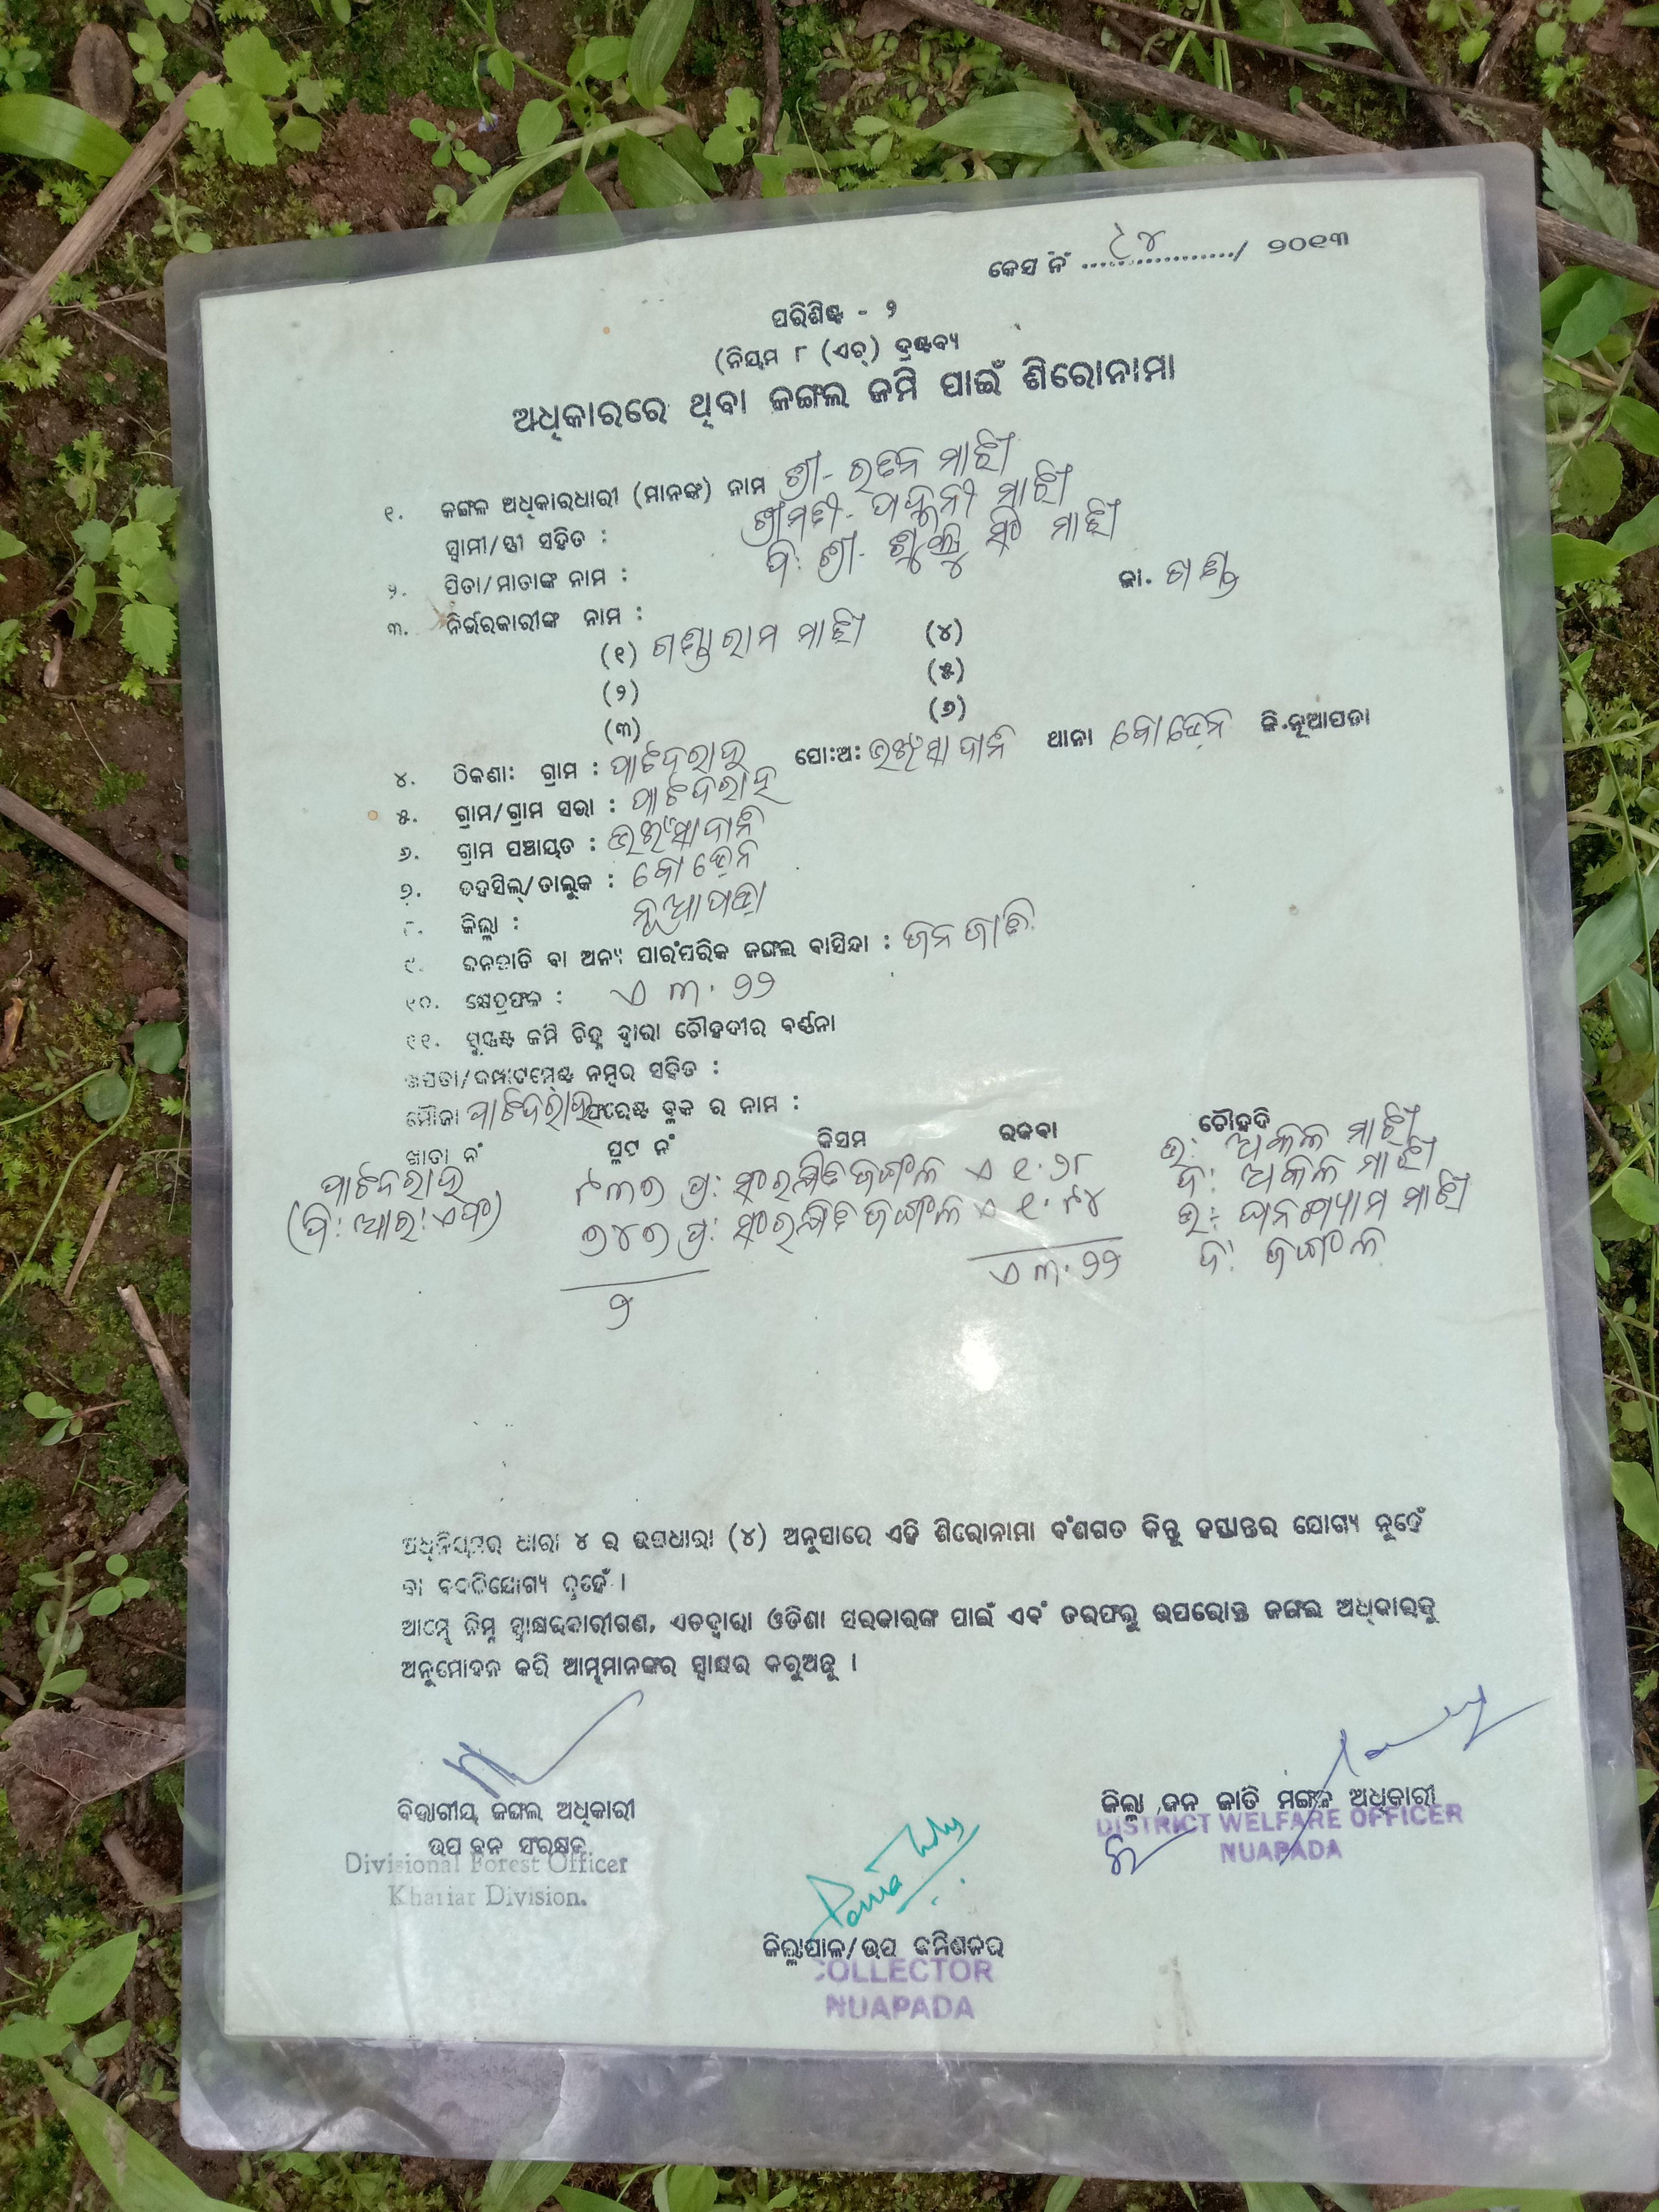 କେସ ନଂ ................./ ୨୦୧୩
ପରିଶିଷ୍ଟ - ୨
(ନିୟମ ୮ (ଏଚ୍) ଦ୍ରଷ୍ଟବ୍ୟ
ଅଧିକାରରେ ଥିବା ଜଙ୍ଗଲ ଜମି ପାଇଁ ଶିରୋନାମା
୧. ଜଙ୍ଗଲ ଅଧିକାରଧାରୀ (ମାନଙ୍କ) ନାମ ଶ୍ରୀ- ରତନ ମାଝୀ
ସ୍ୱାମୀ/ସ୍ତ୍ରୀ ସହିତ : ଶ୍ରୀମତୀ- ମାଝୀ
୨. ପିତା/ମାତାଙ୍କ ନାମ : ପି: ଶ୍ରୀ- ସିଂ ମାଝୀ ଜା. ଗଣ୍ଡ
୩. ନିର୍ଭରକାରୀଙ୍କ ନାମ :
(୧) ଗଣ୍ଡାରାମ ମାଝୀ (୪)
(୨) (୫)
(୩) (୬)
୪. ଠିକଣା: ଗ୍ରାମ : ପାଟଦରାହ ପୋ:ଅ: ଥାନା ବୋଡ଼େନ ଜି.ନୂଆପଡା
୫. ଗ୍ରାମ/ଗ୍ରାମ ସଭା : ପାଟଦରାହ
୬. ଗ୍ରାମ ପଞ୍ଚାୟତ :
୭. ତହସିଲ୍/ତାଲୁକ : ବୋଡ଼େନ
୮. ଜିଲ୍ଲା : ନୂଆପଡ଼ା
୯. ଜନଜାତି ବା ଅନ୍ୟ ପାରଂପରିକ ଜଙ୍ଗଲ ବାସିନ୍ଦା : ଜନଜାତି
୧୦. କ୍ଷେତ୍ରଫଳ : ଏ ୩.୨୨
୧୧. ସୁସ୍ପଷ୍ଟ ଜମି ଚିହ୍ନ ଦ୍ୱାରା ଚୌହଦୀର ବର୍ଣ୍ଣନା
ଖସଡା/କମ୍ପାଟମେଣ୍ଟ ନମ୍ବର ସହିତ :
ମୌଜା ପାଟଦରାହ ଫରେଷ୍ଟ ବ୍ଲକ ର ନାମ :
ଖାତା ନଂ ପ୍ଲଟ ନଂ କିସମ ରକବା ଚୌହଦି
ପାଟଦରାହ ୯୩୭ ପ୍ର: ସଂରକ୍ଷିତ ଜଙ୍ଗଲ ଏ ୧.୨୮ ଉ: ଅକଳ ମାଝୀ
ଦ: ଅକଳ ମାଝୀ
(ପି: ଆର: ଏଫ) ୭୪୭ ପ୍ର: ସଂରକ୍ଷିତ ଜଙ୍ଗଲ ଏ ୧.୯୪ ଉ: ଘନଶ୍ୟାମ ମାଝୀ
ଦ: ଜଙ୍ଗଲ
୨ ଏ ୩.୨୨
ଅଧିନିୟମର ଧାରା ୪ ର ଉପଧାରା (୪) ଅନୁସାରେ ଏହି ଶିରୋନାମା ବଂଶଗତ କିନ୍ତୁ ହସ୍ତାନ୍ତର ଯୋଗ୍ୟ ନୁହେଁ
ବା ବଦଳିଯୋଗ୍ୟ ନୁହେଁ ।
ଆମ୍ଭେ ନିମ୍ନ ସ୍ୱାକ୍ଷରକାରୀଗଣ, ଏତଦ୍ୱାରା ଓଡିଶା ସରକାରଙ୍କ ପାଇଁ ଏବଂ ତରଫରୁ ଉପରୋକ୍ତ ଜଙ୍ଗଲ ଅଧିକାରକୁ
ଅନୁମୋଦନ କରି ଆମ୍ଭମାନଙ୍କର ସ୍ୱାକ୍ଷର କରୁଅଛୁ ।
ବିଭାଗୀୟ ଜଙ୍ଗଲ ଅଧିକାରୀ
ଉପ ବନ ସଂରକ୍ଷକ
Divisional Forest Officer
Khariar Division.
ଜିଲ୍ଲା ଜନ ଜାତି ମଙ୍ଗଳ ଅଧିକାରୀ
DISTRICT WELFARE OFFICER
NUAPADA
ଜିଲ୍ଲାପାଳ/ଉପ କମିଶନର
COLLECTOR
NUAPADA